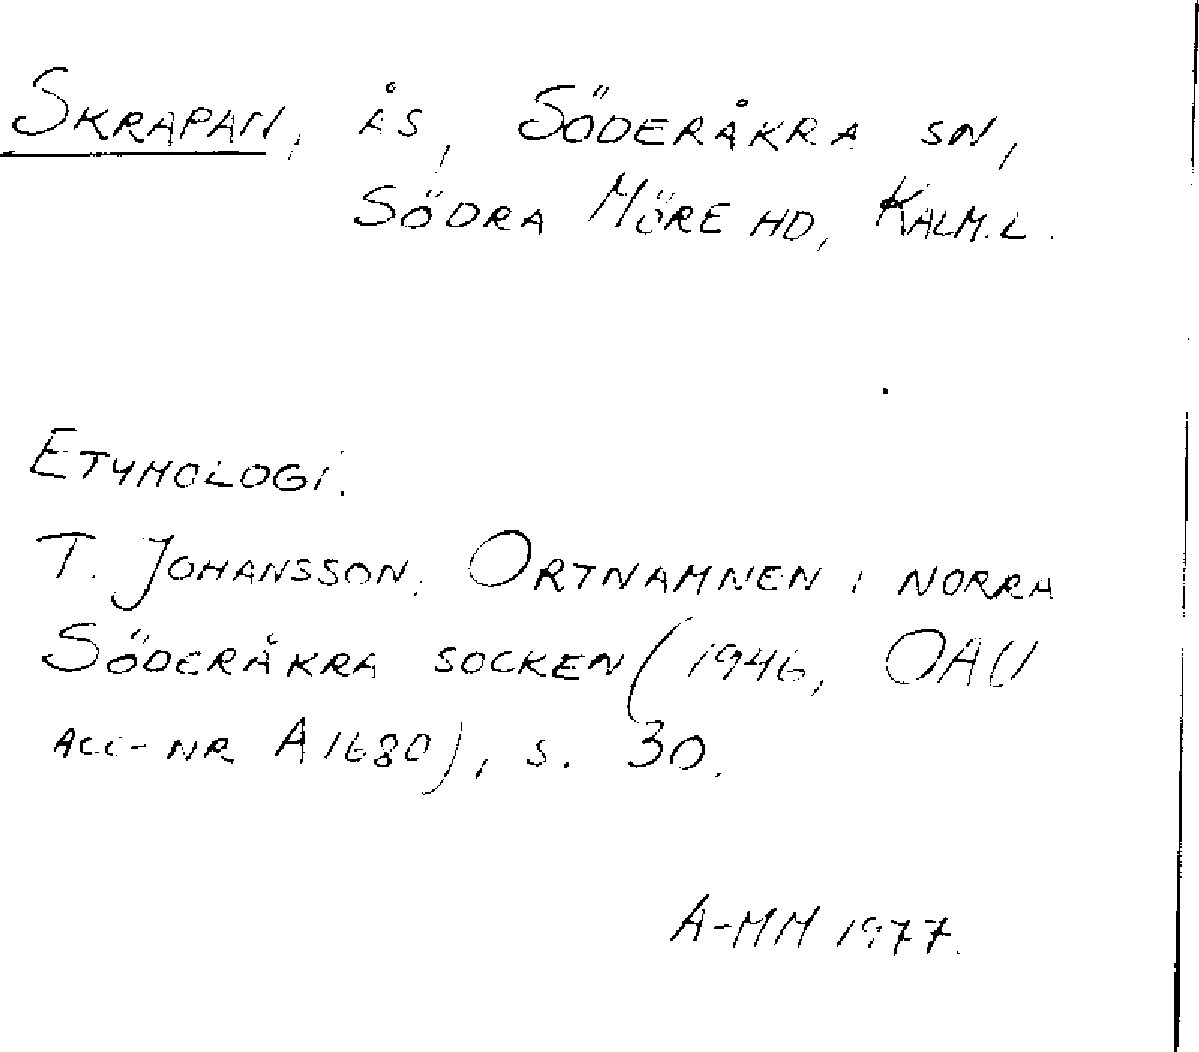 SKRAPAN, ÅS, SÖDERÅKRA SN,
SÖDRA MÖRE HD, KALM.L.
ETYMOLOGI.
T. JOHANSSON. ORTNAMNEN I NORRA
SÖDERÅKRA SOCKEN (1946, OAU
ACC-NR A1680), S. 30.
A-MM 1977.